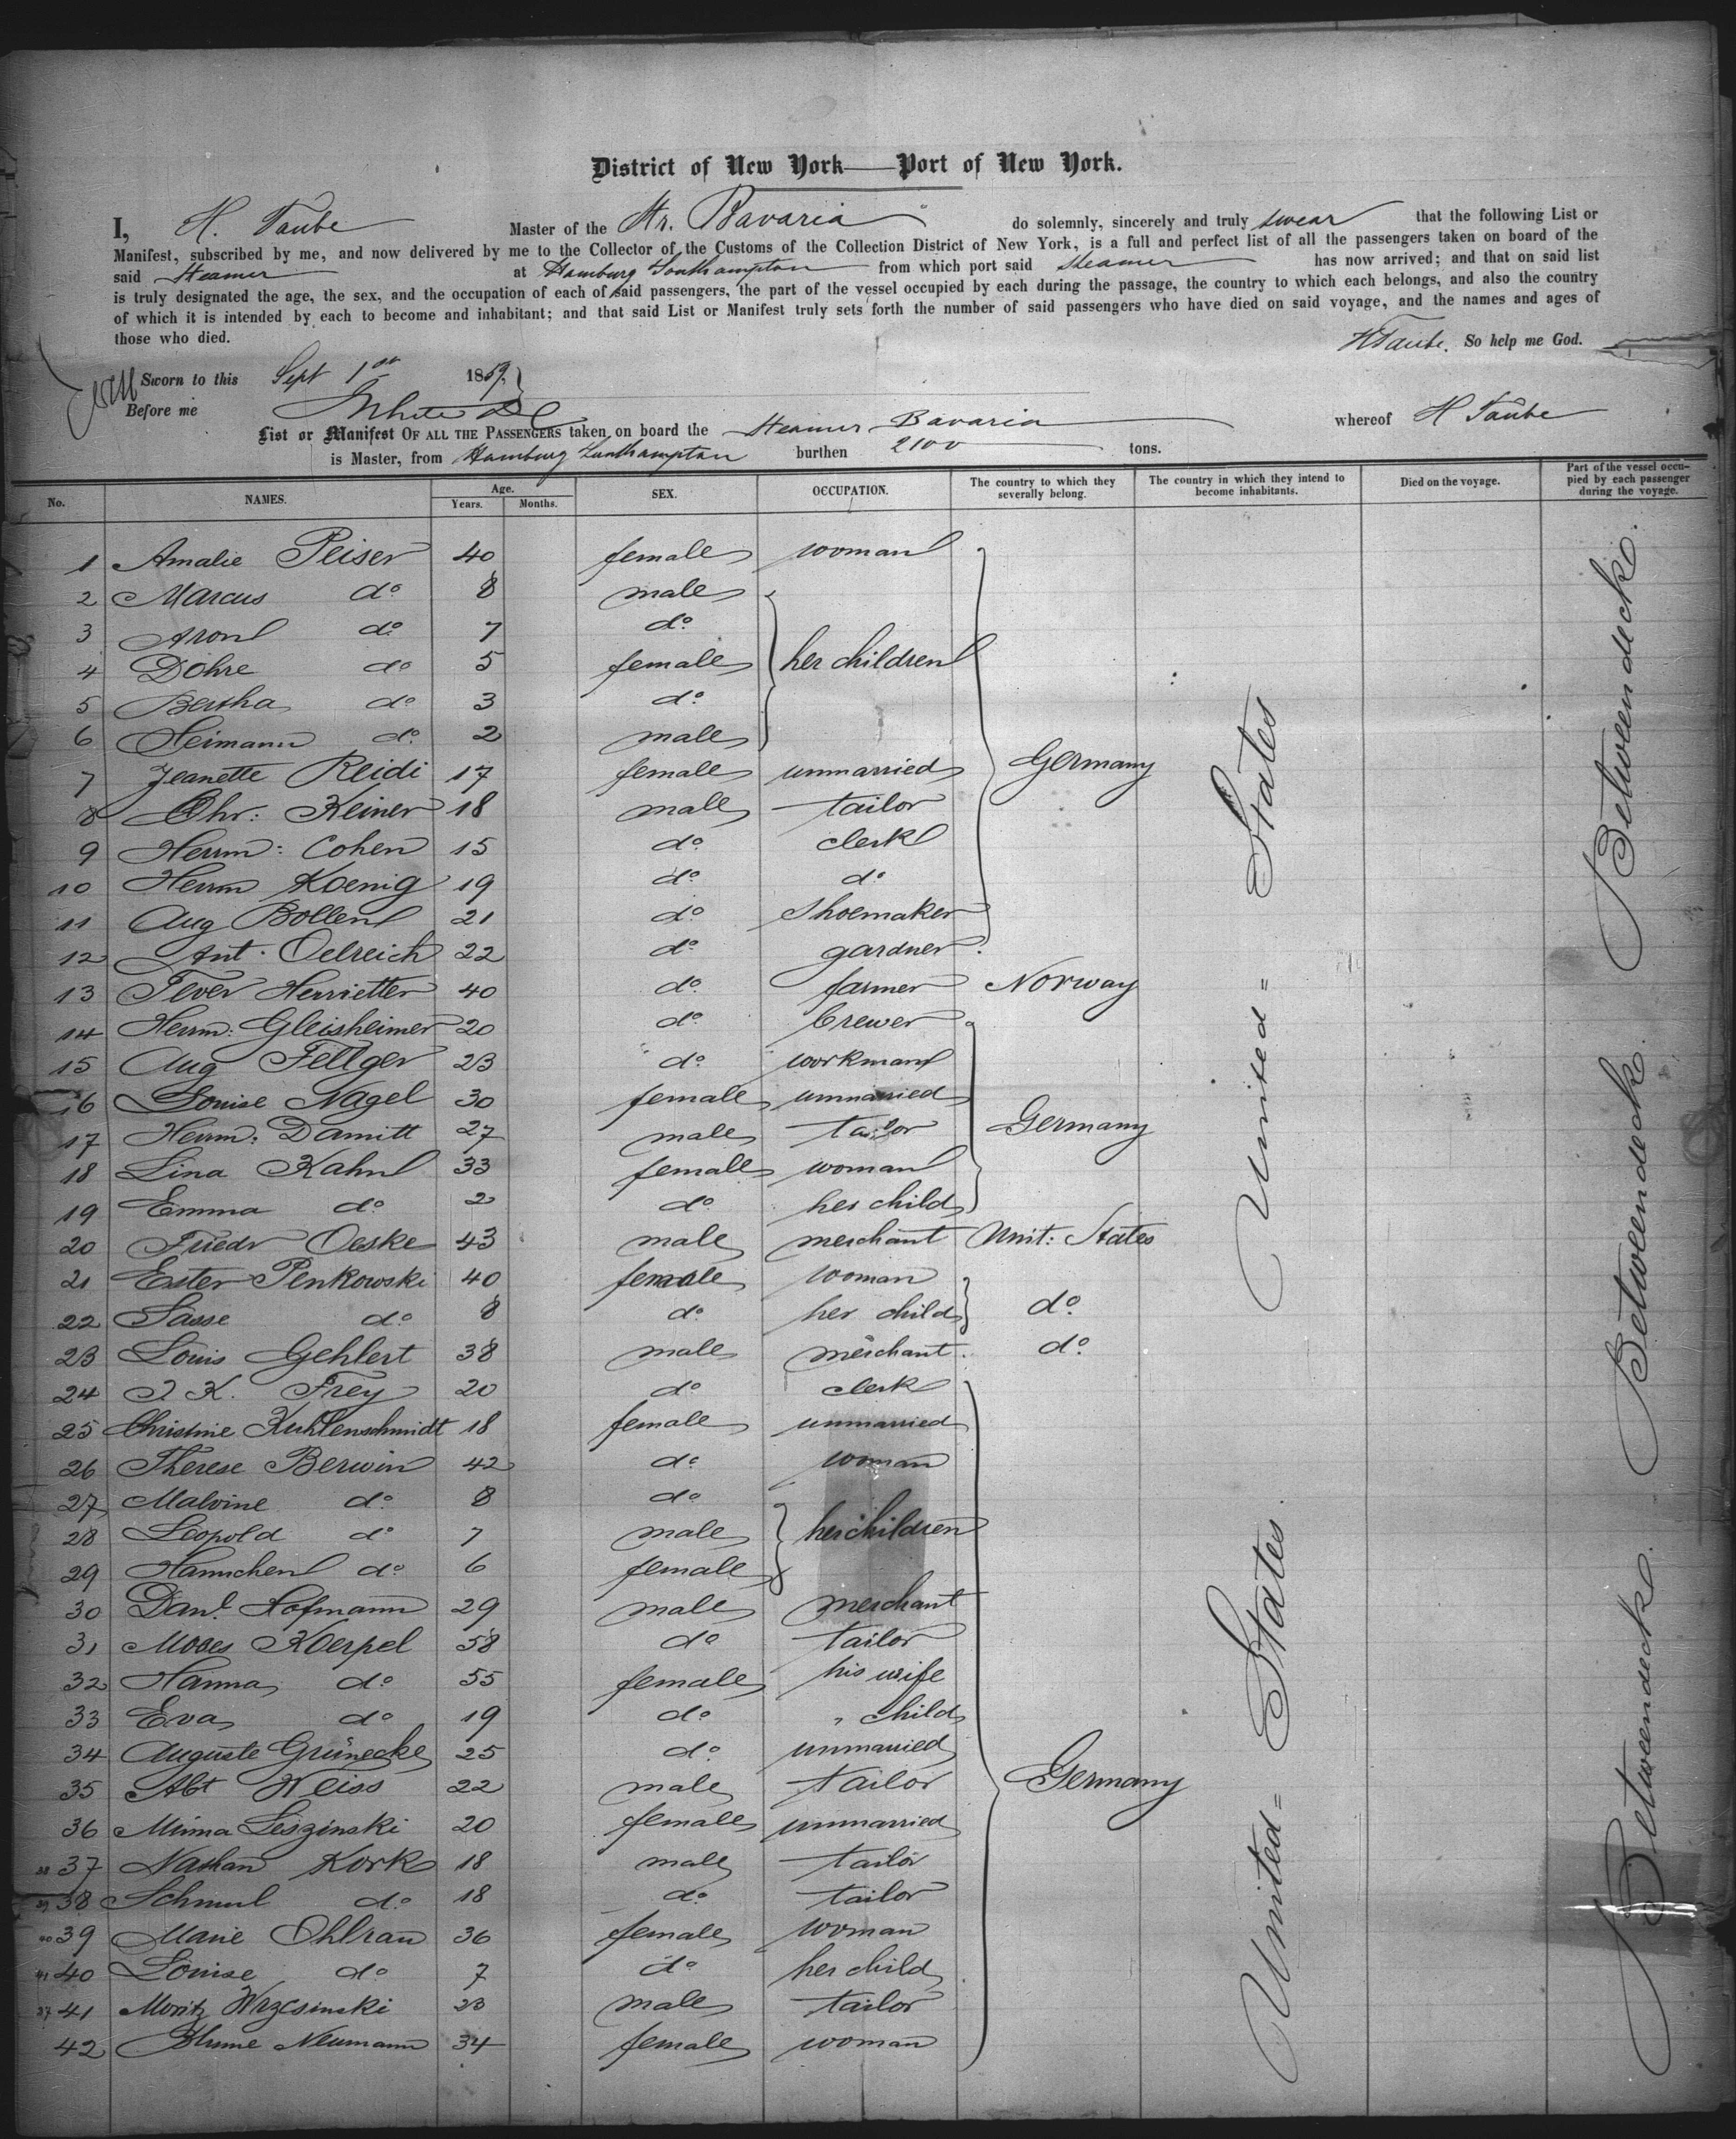 District of New York — Port of New York.
I, H. Taube Master of the Str. Bavaria do solemnly, sincerely and truly swear that the following List or
Manifest, subscribed by me, and now delivered by me to the Collector of the Customs of the Collection District of New York, is a full and perfect list of all the passengers taken on board of the
said Steamer at Hamburg Southampton from which port said Steamer has now arrived; and that on said list
is truly designated the age, the sex, and the occupation of each of said passengers, the part of the vessel occupied by each during the passage, the country to which each belongs, and also the country
of which it is intended by each to become and inhabitant; and that said List or Manifest truly sets forth the number of said passengers who have died on said voyage, and the names and ages of
those who died. HTaube. So help me God.
Sworn to this Sept 1st 1859
Before me White
List or Manifest OF ALL THE PASSENGERS taken on board the Steamer Bavaria whereof H Taube
is Master, from Hamburg Southampton burthen 2100 tons.
No. NAMES. Age. Years. Months. SEX. OCCUPATION. The country to which they severally belong. The country in which they intend to become inhabitants. Died on the voyage. Part of the vessel occupied by each passenger during the voyage.
1 Amalie Peiser 40 female woman
2 Marcus do 8 male
3 Aron do 7 do
4 Dohre do 5 female her children
5 Bertha do 3 do
6 Heimann do 2 male
7 Jeanette Reidi 17 female unmarried Germany
8 Chr: Keiner 18 male tailor
9 Herrm: Cohen 15 do clerk
10 Herrm Koenig 19 do do
11 Aug Bollen 21 do Shoemaker
12 Ant. Oelreich 22 do gardner
13 Tever Herrietter 40 do farmer Norway
14 Herrm: Gleisheimer 20 do brewer
15 Aug Fellger 23 do workman
16 Louise Nagel 30 female unmarried
17 Herrm: Damitt 27 male tailor Germany
18 Lina Kahn 33 female woman
19 Emma do 2 do her child
20 Friedr Oeske 43 male merchant Unit: States
21 Ester Penkowski 40 female woman
22 Sasse do 8 do her child do
23 Louis Gehlert 38 male merchant do
24 J K. Frey 20 do clerk
25 Christine Kuhlenschmidt 18 female unmarried
26 Therese Berwin 42 do woman
27 Malvine do 8 do
28 Leopold do 7 male her children
29 Hannchen do 6 female
30 Danl. Hofmann 29 male merchant
31 Moses Koerpel 58 do tailor
32 Hanna do 55 female his wife
33 Eva do 19 do " child
34 Auguste Grünecke 25 do unmarried
35 Abt Weiss 22 male tailor Germany
36 Minna Leszinski 20 female unmarried
38 37 Nathan Kork 18 male tailor
39 38 Schmul do 18 do tailor
40 39 Marie Ohlrau 36 female woman
41 40 Louise do 7 do her child
37 41 Moritz Wrzesinski 23 male tailor
42 Blume Neumann 34 female woman
United = States
United = States
Betweendecke.
Betweendecke.
Betweendecke.